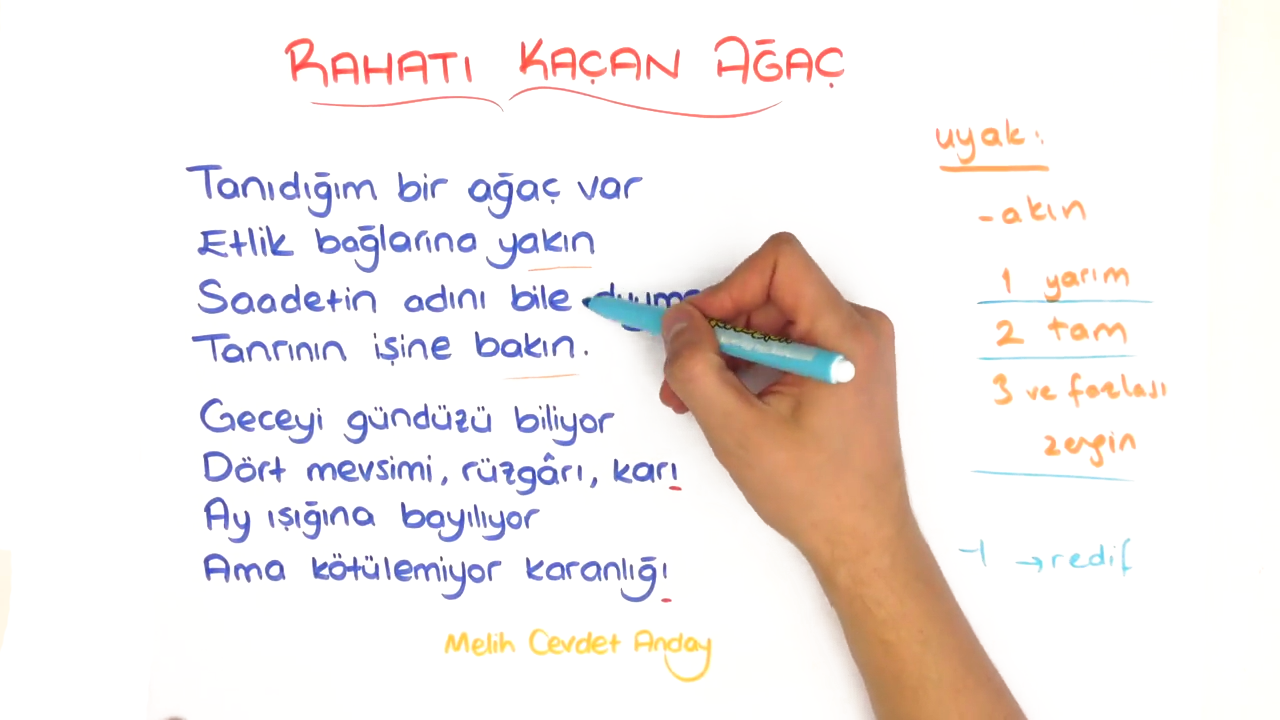 RAHATI KAÇAN AĞAÇ
Tanıdığım bir ağaç var
Etlik bağlarına yakın
Saadetin adını bile
Tanrının işine bakın.
Geceyi gündüzü biliyor
Dört mevsimi, rüzgârı, karı
Ay ışığına bayılıyor
Ama kötülemiyor karanlığı
Melih Cevdet Anday
uyak:
-akın
1 yarım
2 tam
3 ve fazlası
zengin
-ı → redif